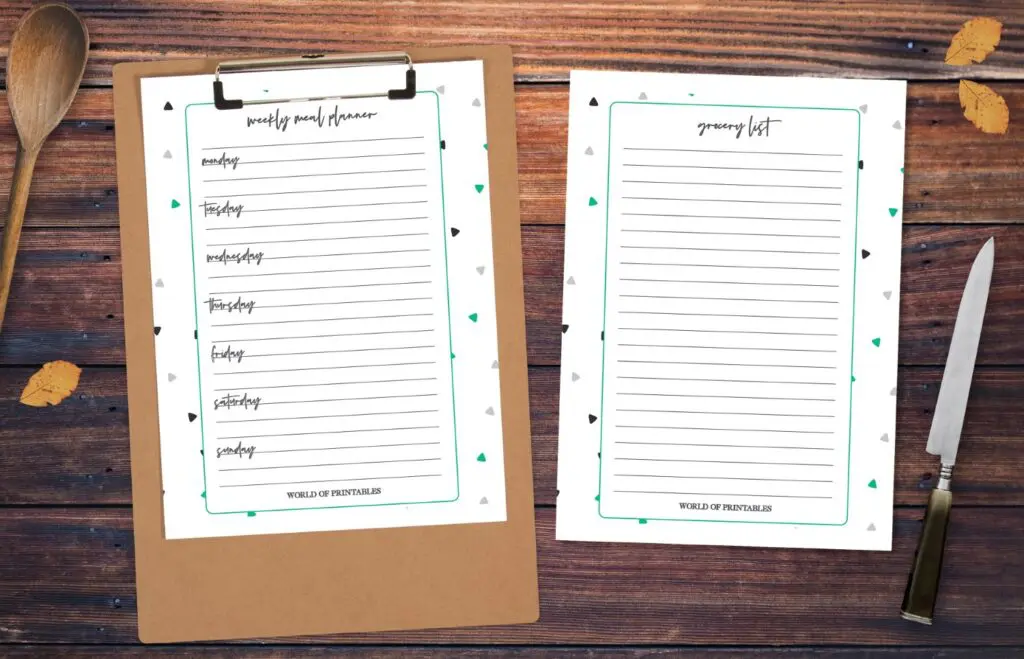 weekly meal planner
monday
tuesday
wednesday
thursday
friday
saturday
sunday
WORLD OF PRINTABLES
grocery list
WORLD OF PRINTABLES